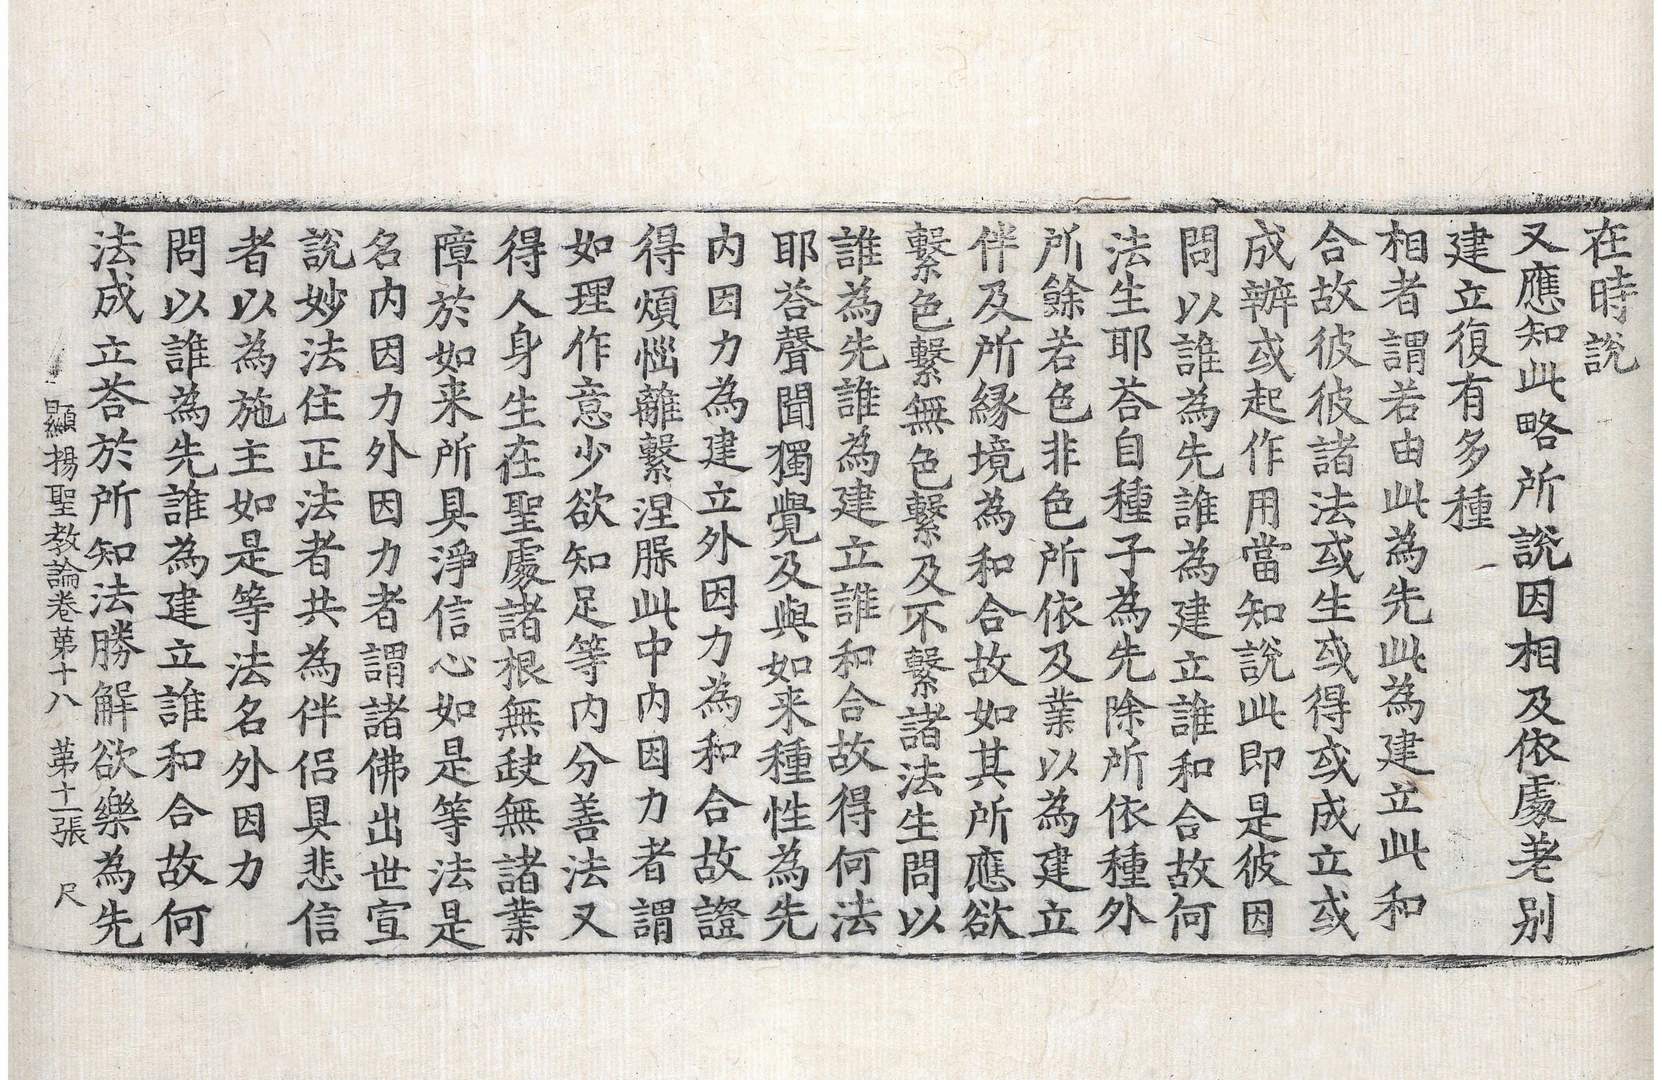 在時說
又應知此略所說因相及依處差别
建立復有多種
相者謂若由此為先此為建立此和
合故彼彼諸法或生或得或成立或
成辦或起作用當知說此即是彼因
問以誰為先誰為建立誰和合故何
法生耶荅自種子為先除所依種外
所餘若色非色所依及業以為建立
伴及所緣境為和合故如其所應欲
繫色繫無色繫及不繫諸法生問以
誰為先誰為建立誰和合故得何法
耶荅聲聞獨覺及與如来種性為先
内因力為建立外因力為和合故證
得煩惱離繫涅槃此中内因力者謂
如理作意少欲知足等内分善法又
得人身生在聖處諸根無缺無諸業
障於如来所具淨信心如是等法是
名内因力外因力者謂諸佛出世宣
說妙法住正法者共為伴侣具悲信
者以為施主如是等法名外因力
問以誰為先誰為建立誰和合故何
法成立荅於所知法勝解欲樂為先
顯揚聖教論卷苐十八 苐十一張 尺